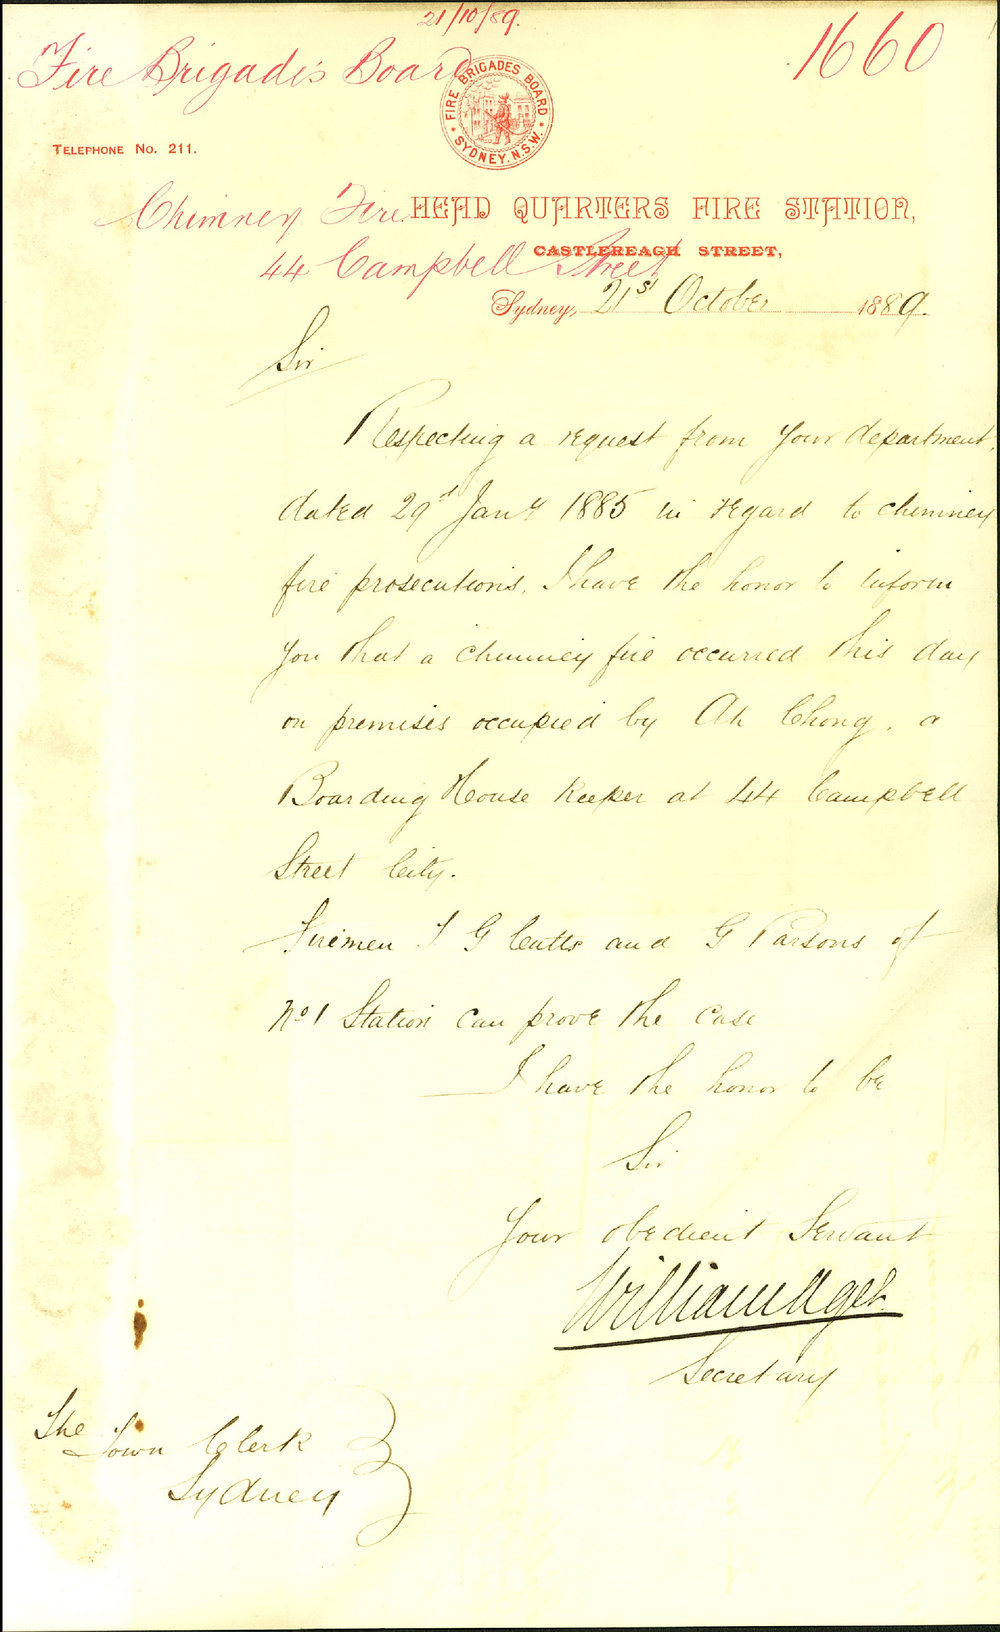 21/10/89.
Fire Brigades Board
1660
FIRE BRIGADES BOARD
SYDNEY. N.S.W.
TELEPHONE No. 211.
Chimney Fire
HEAD QUARTERS FIRE STATION,
44 Campbell Street
CASTLEREAGH STREET,
Sydney, 21st October 1889.
Sir
Respecting a request from your department,
dated 29th Jany 1885 in regard to chimney
fire prosecutions, I have the honor to inform
you that a chimney fire occurred this day
on premises occupied by Ah Chong, a
Boarding House Keeper at 44 Campbell
Street City.
Firemen T G Cutts and G Parsons of
No 1 Station can prove the case
I have the honor to be
Sir
Your obedient Servant
William Ager
Secretary
The Town Clerk
Sydney